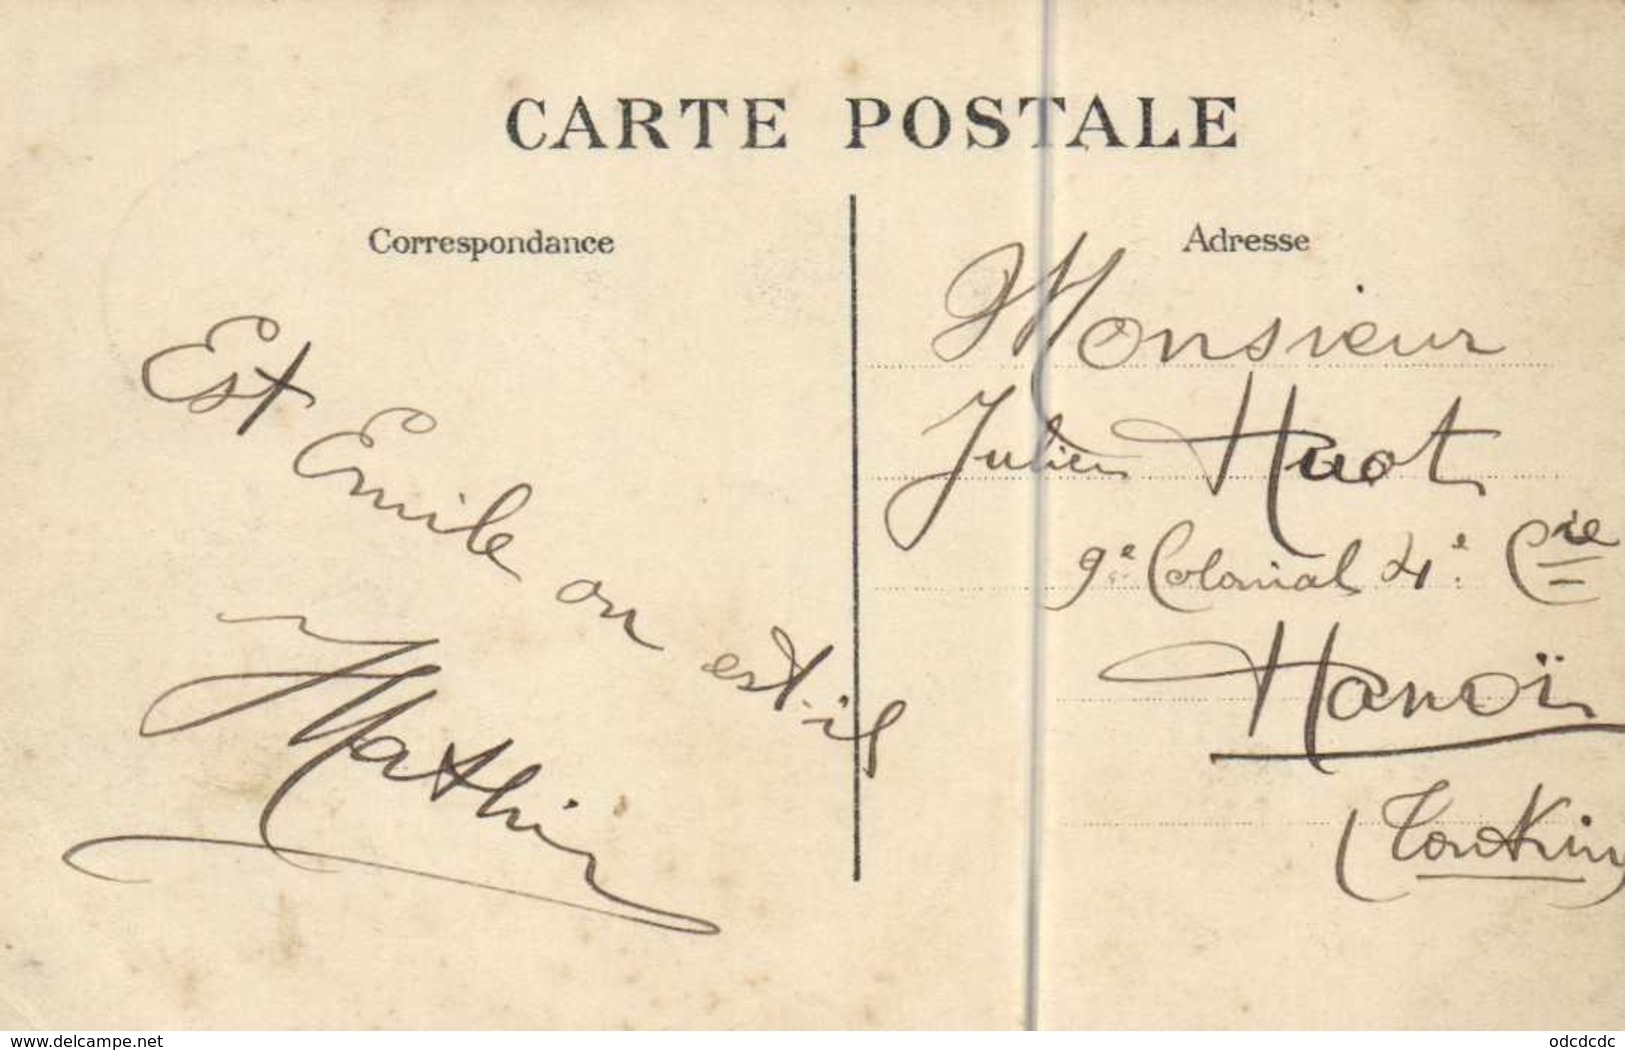 CARTE POSTALE
Correspondance
Est Emile ou est-il
Mathieu
Adresse
Monsieur
Julien Huot
9e Colonial 4e Cie
Hanoï
(Tonkin)
www.delcampe.net
odcdcdc